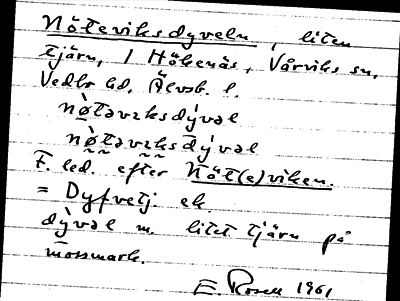 Nöteviksdyveln, liten
tjärn, 1 Hökenäs, Vårviks sn,
Vedbo hd. Älvsb. l.
nø̀təvɩksdývəl
nø̀təvɩksdývəl
F. led. efter Nöt(e)viken.
= Dyfvetj. ek.
dy̆vəl m. litet tjärn på
mossmark.
E. Rosell 1961